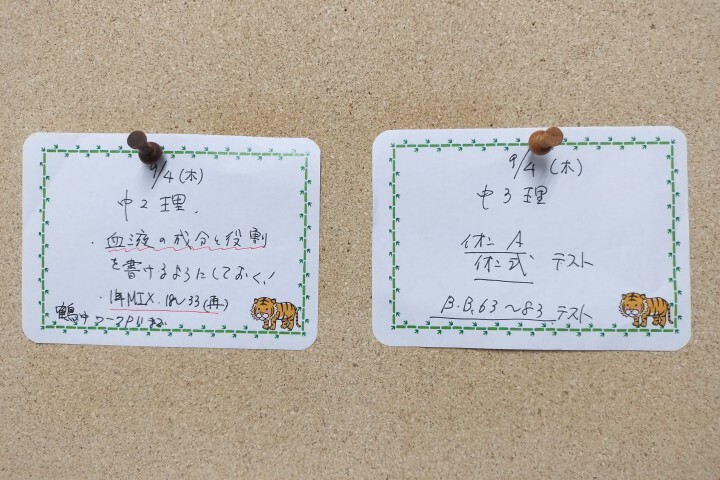 9/4(木)
中2理.
・血液の成分と役割
を書けるようにしておく!
・1年MIX.18~33(再)
鶴中ワークP11まで
9/4(木)
中3理
イオンA
イオン式、テスト
B.B.63~83.テスト